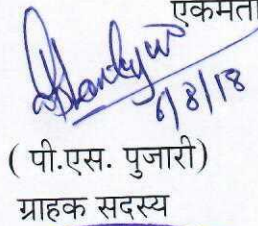 एकमता
6/8/18
( पी.एस. पुजारी)
ग्राहक सदस्य